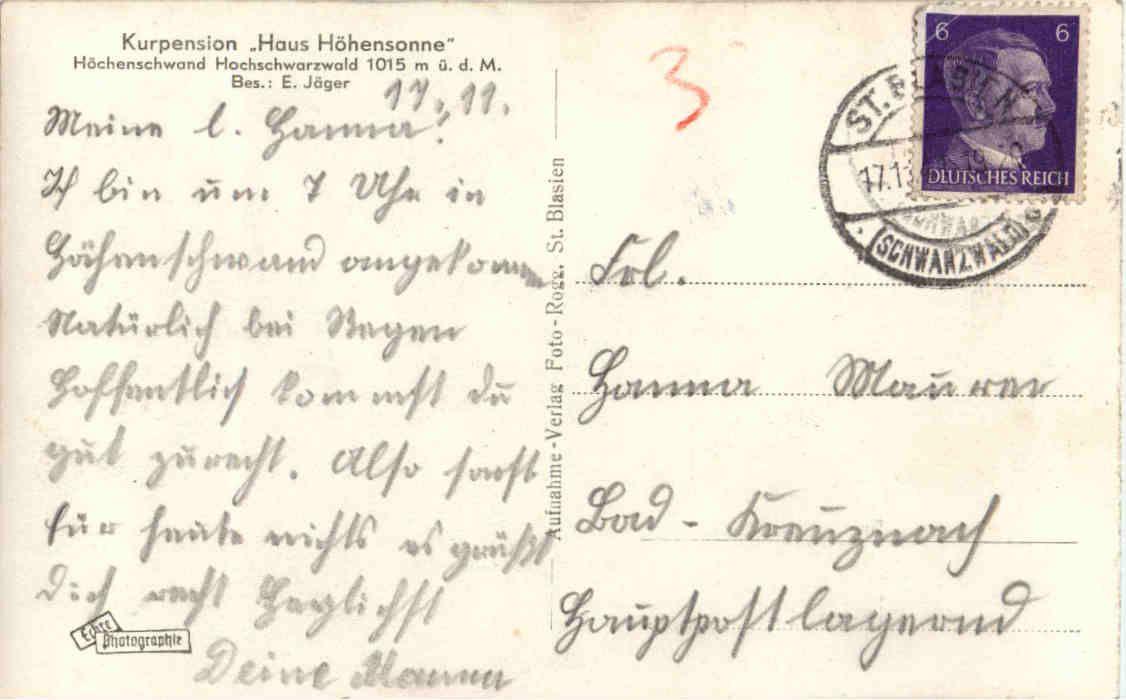 Kurpension „Haus Höhensonne"
Höchenschwand Hochschwarzwald 1015 m ü. d. M.
Bes.: E. Jäger
17. 11.
Meine l. Hanna!
Ich bin um 7 Uhr in
Höhenschwand angekomm
Natürlich bei Regen
Hoffentlich kommst du
gut zurecht. Also sonst
für heute nichts es grüßt
Dich recht Herzlichst
Deine Mama
Echte
Photographie
Aufnahme-Verlag Foto-Rogg, St. Blasien
3
6 6
DEUTSCHES REICH
ST. BLASIEN
17.11
(SCHWARZWALD)
Frl.
Hanna Maurer
Bad-Kreuznach
Hauptpostlagernd